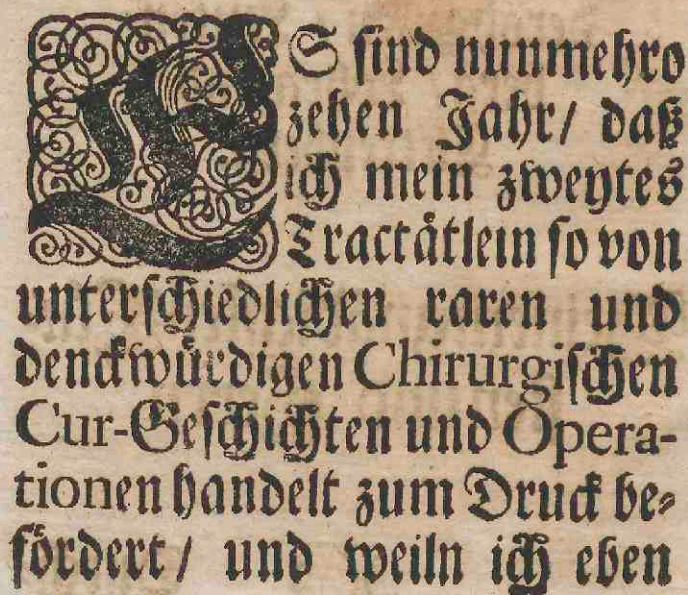 ES sind nunmehro
zehen Jahr/ daß
ich mein zweytes
Tractätlein so von
unterschiedlichen raren und
denckwürdigen Chirurgischen
Cur-Geschichten und Opera-
tionen handelt zum Druck be-
fördert/ und weiln ich eben